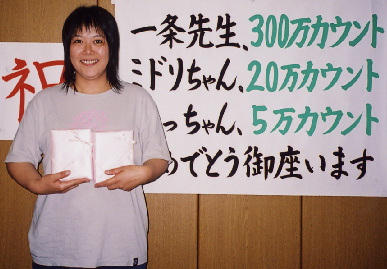 祝
一条先生、300万カウント
ミドリちゃん、20万カウント
っちゃん、5万カウント
めでとう御座います